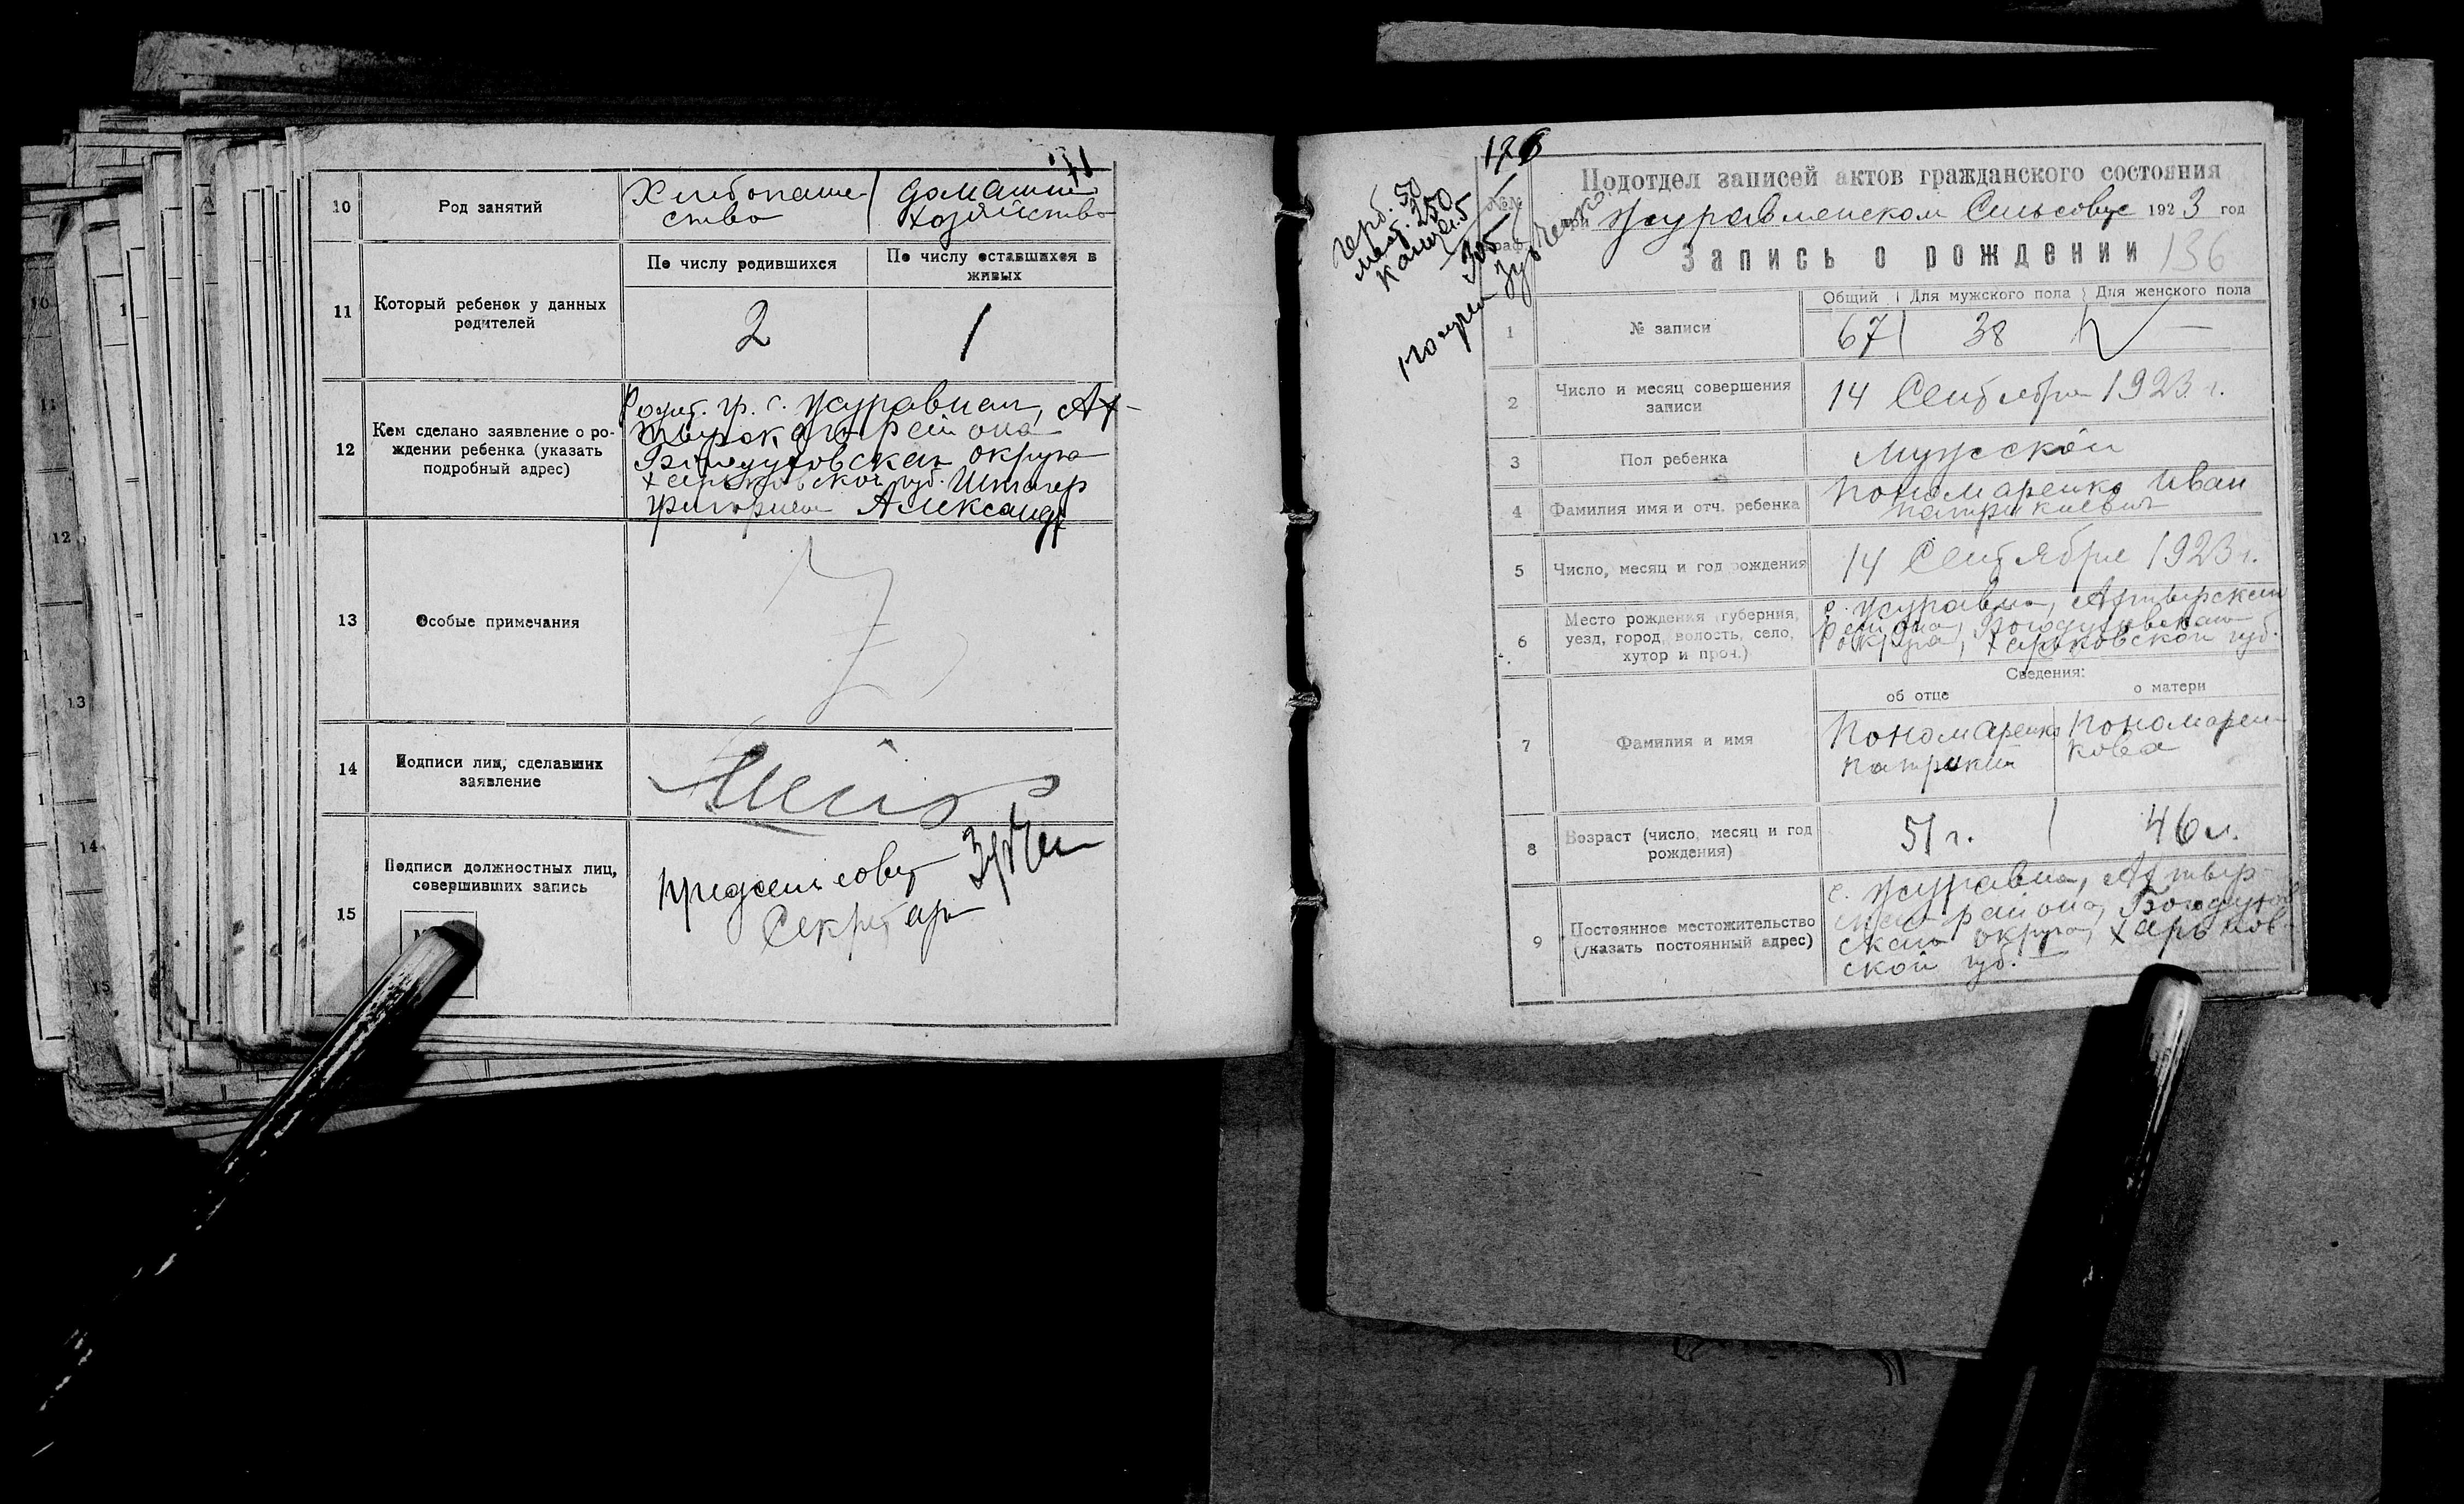 71
10 Род занятий Хлебопаше- домашнее
ство хозяйство
По числу родившихся По числу оставшихся в
живых
11 Который ребенок у данных
родителей
2 1
12 Кем сделано заявление о ро-
ждении ребенка (указать
подробный адрес)
гр. с. Журавном, Ах-
тырского района
Богодуховского округа
Харьковской губ.
Александр
13 Особые примечания
14 Подписи лиц, сделавших
заявление
15 Подписи должностных лиц,
совершивших запись
Предсельсовет
Секретарь
126
Герб. 50
250
5
305
Подотдел записей актов гражданского состояния
при Журавленском Сельсовете 1923 год
Запись о рождении 136
№№
граф
Общий Для мужского пола Для женского пола
1 № записи 67 38 —
2 Число и месяц совершения
записи
14 Сентября 1923 г.
3 Пол ребенка Мужской
4 Фамилия имя и отч. ребенка Пономаренко Иван
Патрикиевич
5 Число, месяц и год рождения 14 Сентября 1923 г.
6 Место рождения (губерния,
уезд, город, волость, село,
хутор и проч.)
с. Журавна, Ахтырского
района, Богодуховского
округа, Харьковской губ.
Сведения:
об отце о матери
7 Фамилия и имя
Пономаренко Пономарен-
Патрикий кова
8 Возраст (число, месяц и год
рождения)
51 г. 46 л.
9 Постоянное местожительство
(указать постоянный адрес)
с. Журавна, Ахтыр-
ского района, Богодухов-
ского округа, Харьков-
ской губ.